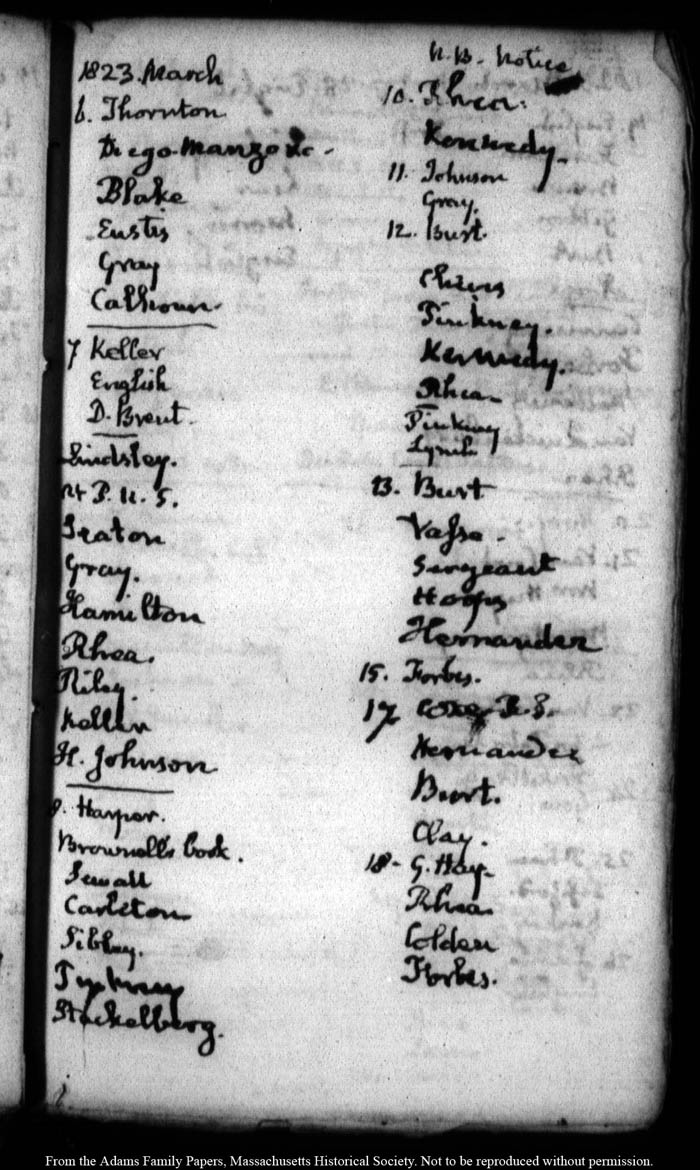 1823. March
6. Thornton
Diego
Blake
Eustis
Gray
Calhoun.
7 Keller
English
D. Brent.
Lindsley.
P. U. S.
Seaton
Gray.
Hamilton
Rhea.
Riley.
Keller
H. Johnson
8. Harper.
Brownell's book.
Sewall
Carleton
Sibley.
Stackelberg.
N.B. Notice
10. Rhea.
Kennedy.
11. Johnson
Gray.
12. Burt.
Cheves
Pinkney.
Kennedy.
Rhea
Pinkney
Lynch
13. Burt
Vasse.
Sergeant
Hernandez
15. Forbes.
17
Hernandez
Burt.
Clay.
18- G. Hay.
Rhea
Colden
Forbes.
From the Adams Family Papers, Massachusetts Historical Society. Not to be reproduced without permission.